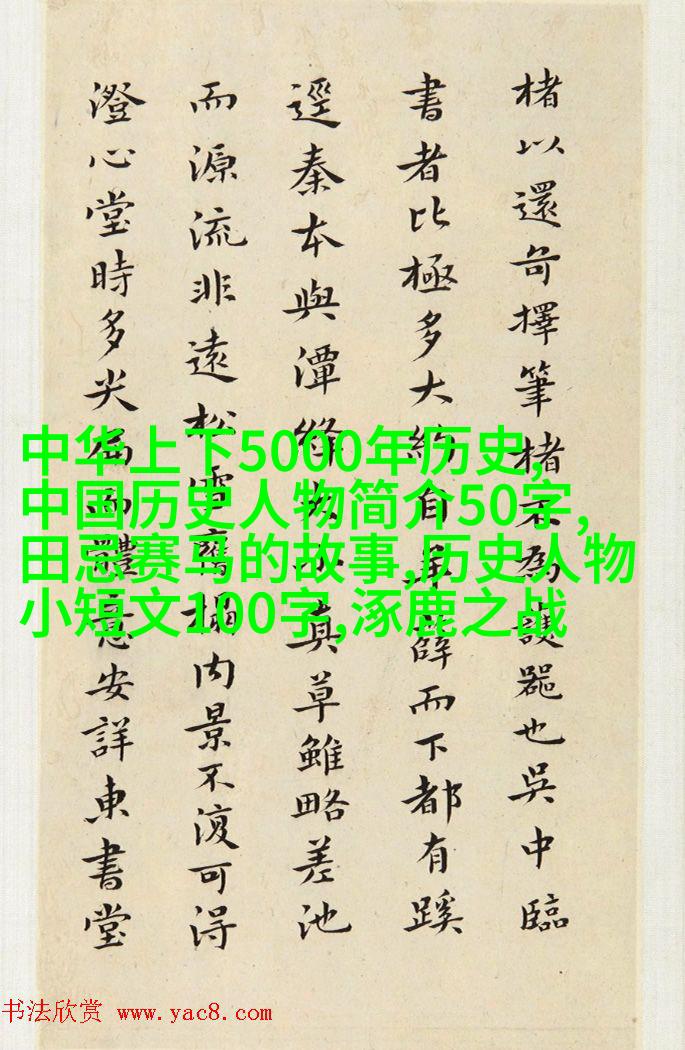 楮以還奇擇筆楮不為護器也吳中臨
書者比極多大約自羊薛而下都有蹊
逕秦本與潭絳亦真草雖略差池
而源流非遠松雪舊搨內景不復可得
澄心堂時多尖面體意安詳東書堂
中华上下5000年历史,
中国历史人物简介50字,
田忌赛马的故事,历史人物
小短文100字,涿鹿之战
书法欣赏 www.yac8.com